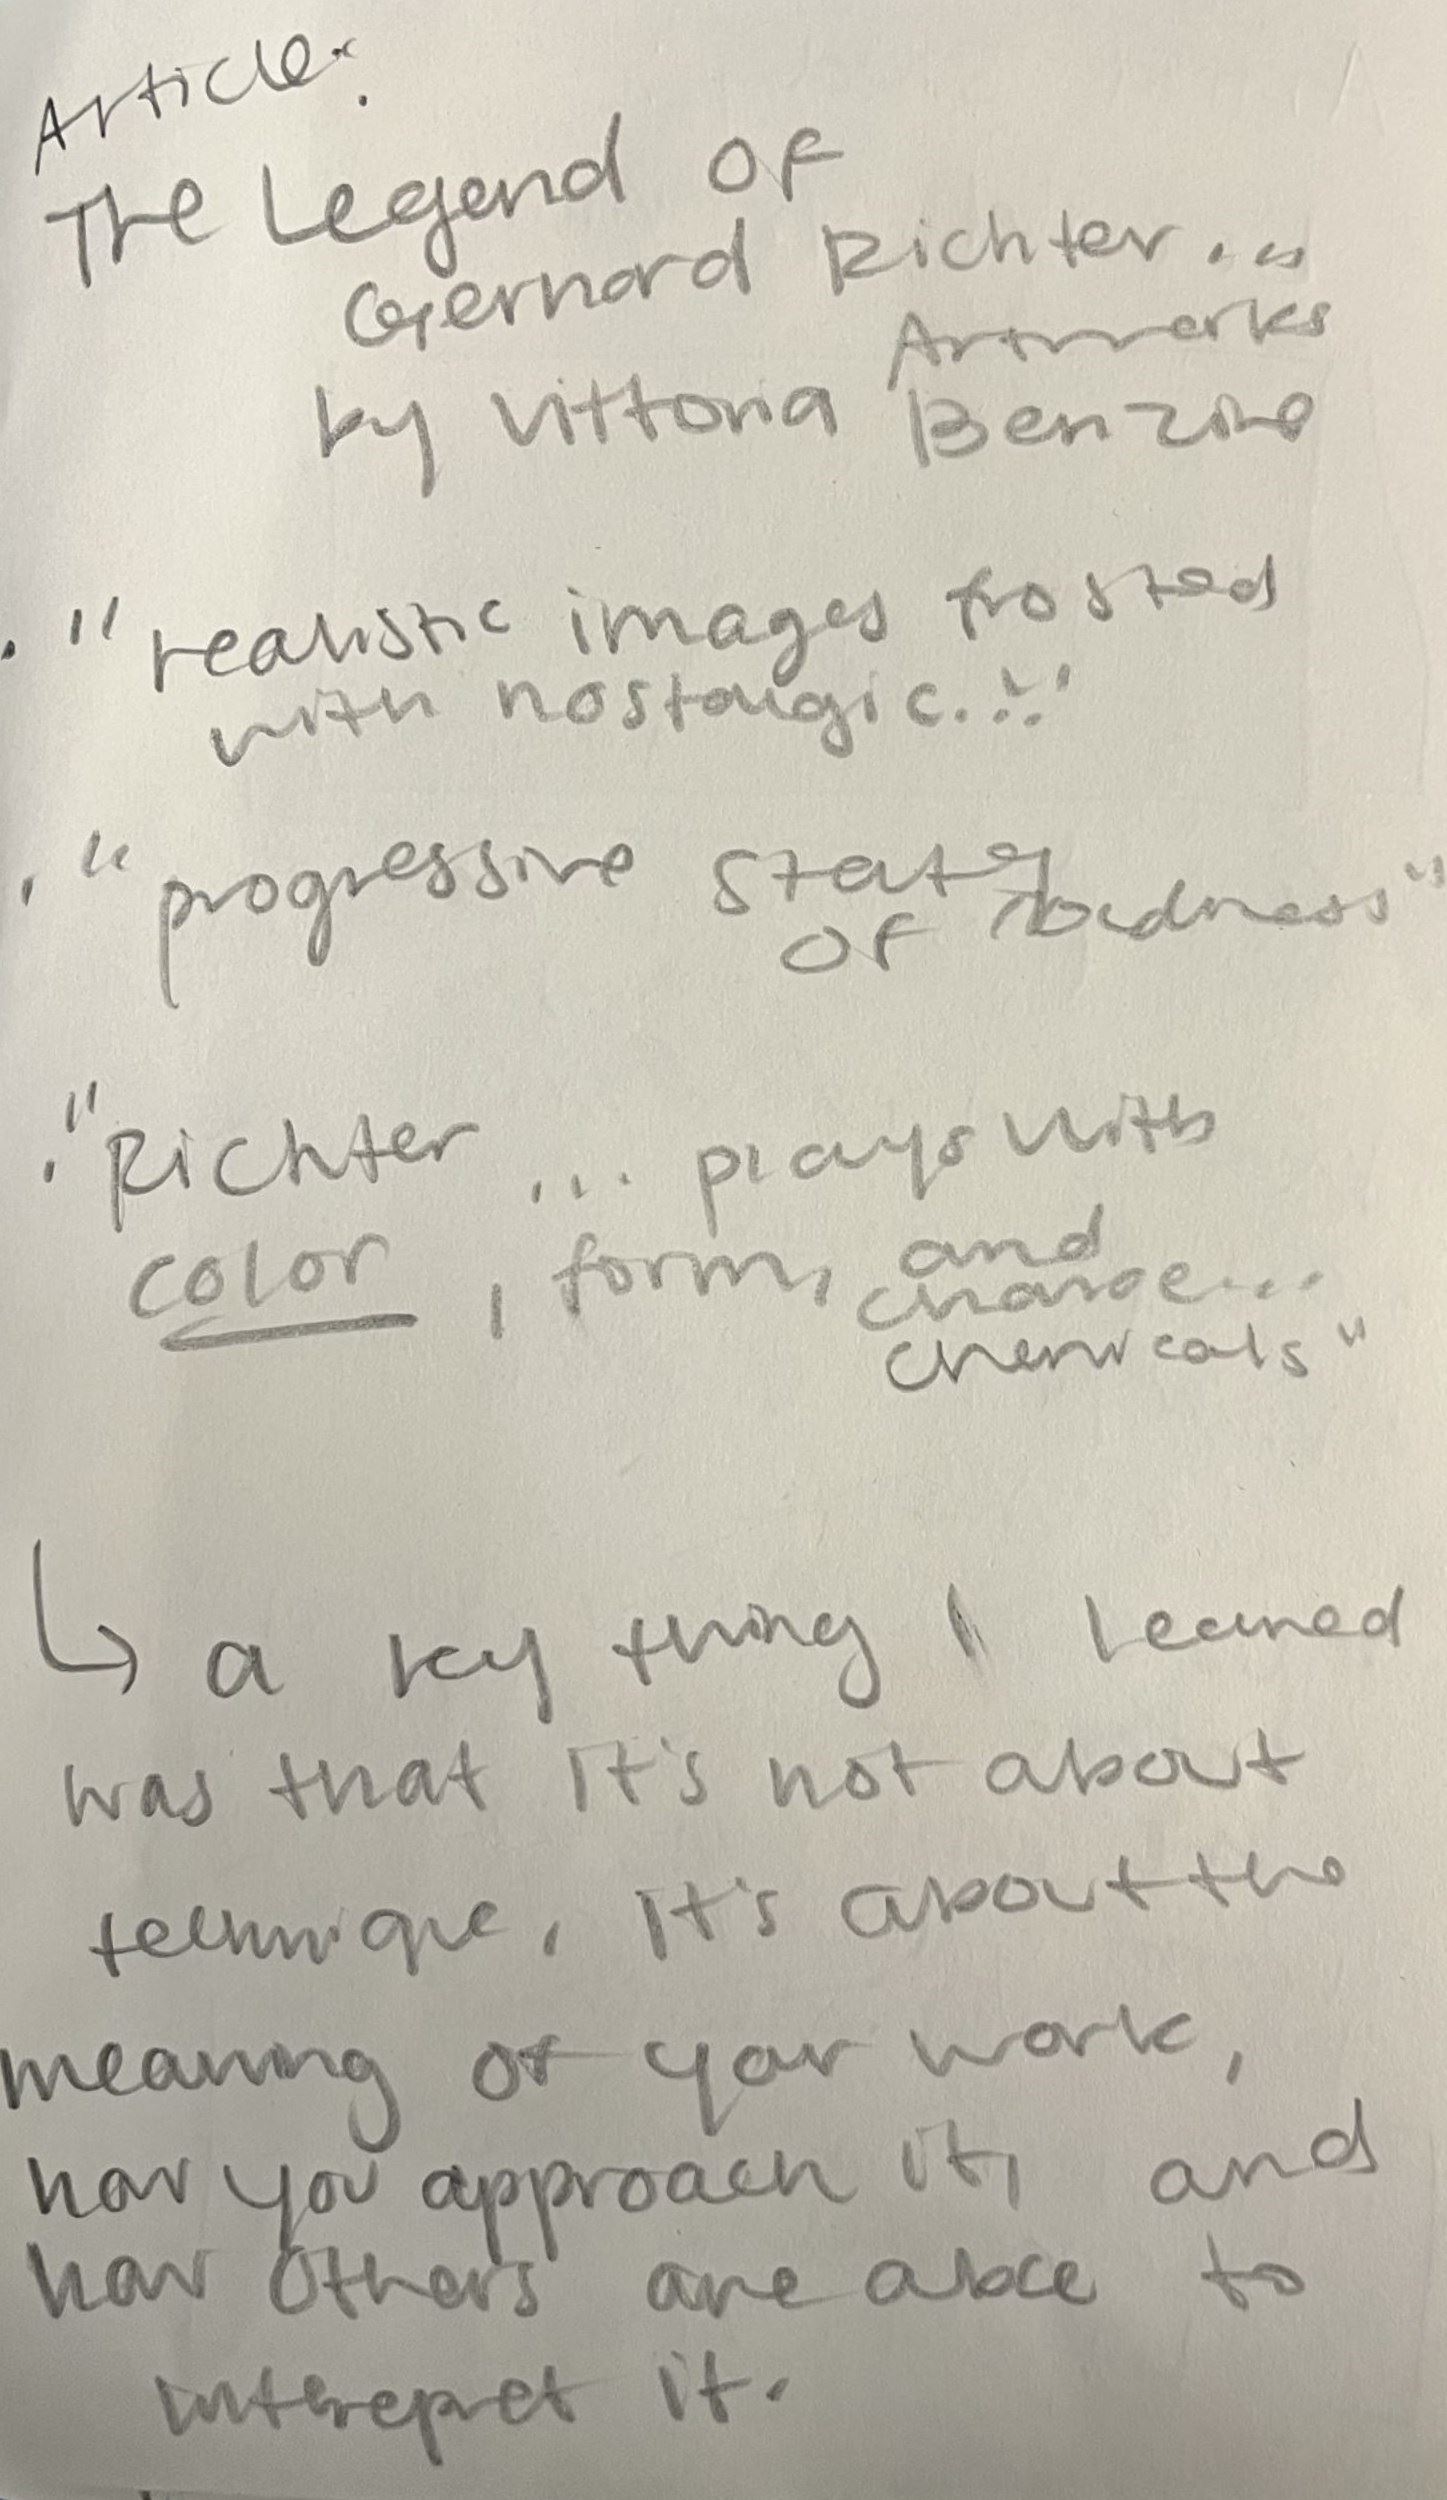 Article:
The Legend of
Gerhard Richter...
Artworks
by Vittoria Benzine
. "realistic images frosted
with nostalgic..."
. "progressive state
of
. "Richter ... plays with
color, form, and
chance...
chemicals"
↳ a key thing I learned
was that it's not about
technique, it's about the
meaning of your work,
how you approach it, and
how others are able to
interepret it.